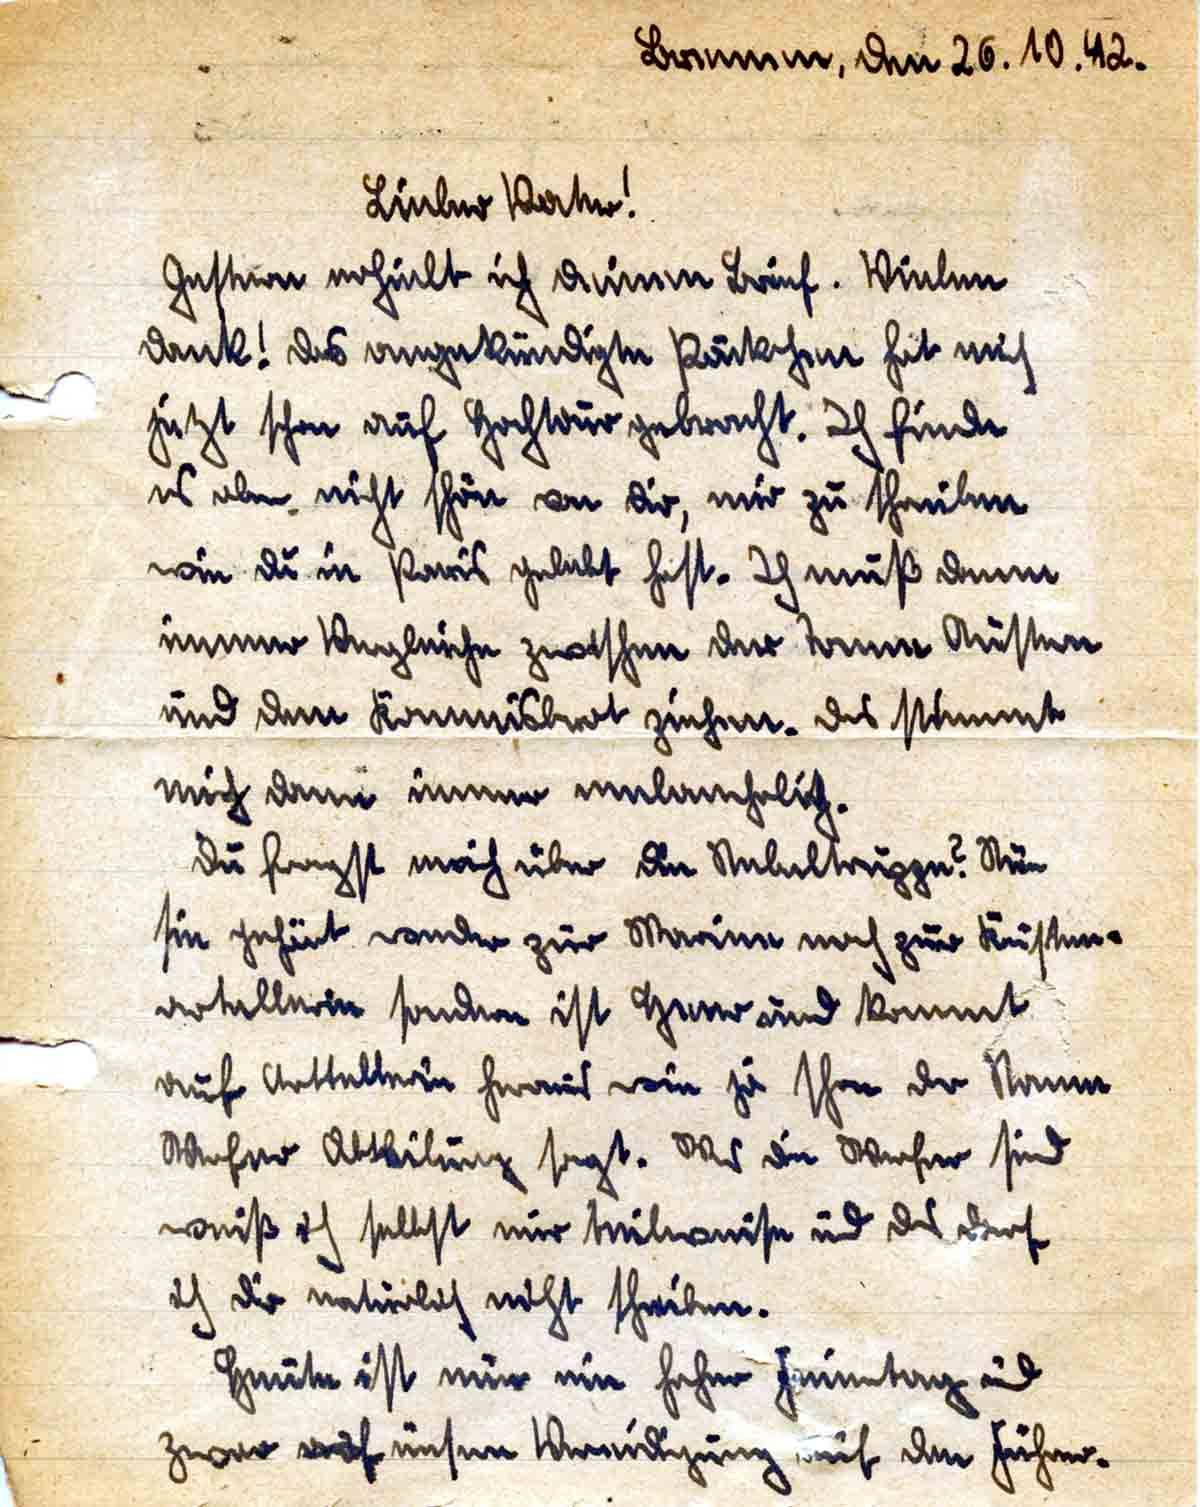 Bremen, den 26.10.42.
Lieber Vater!
Gestern erhielt ich deinen Brief. Vielen
dank! das angekündigte Päckchen hat mich
jetzt schon auf Hochtour gebracht. Ich finde
es aber nicht schön von dir, mir zu schreiben
wie du in Paris gelebt hast. Ich muß dann
immer Vergleiche zwischen der Tonne Austern
und dem Kommisbrot ziehen. das stimmt
mich dann immer melancholich.
Du fragst mich über die Nebeltruppe? Nun
sie gehört weder zur Marine noch zur Küsten-
artellerie sondern ist Heer und kommt
auf Arttellerie heraus wie ja schon der Name
Werfer Abteilung sagt. Was die Werfer sind
weiß ich selbst nur teilweise ud das darf
ich dir natürlich nicht schreiben.
Heute ist nun ein hoher ud
zwar unsere Vereidigung auf den Führer.